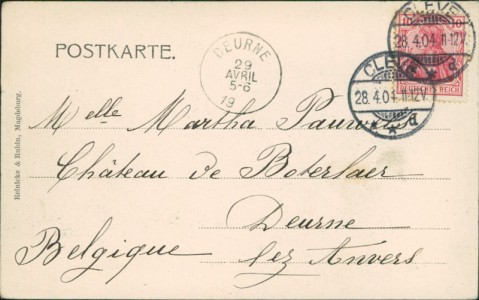 CLEVE
10 10
28.4.04.11-12V.
DEUTSCHES REICH
CLEVE
28.4.04.11-12V.
* * d
DEURNE
29
AVRIL
5-6
19
POSTKARTE.
Melle Martha
Château de Boterlaer
Deurne
Belgique lez Anvers
Reinicke & Rubin, Magdeburg.